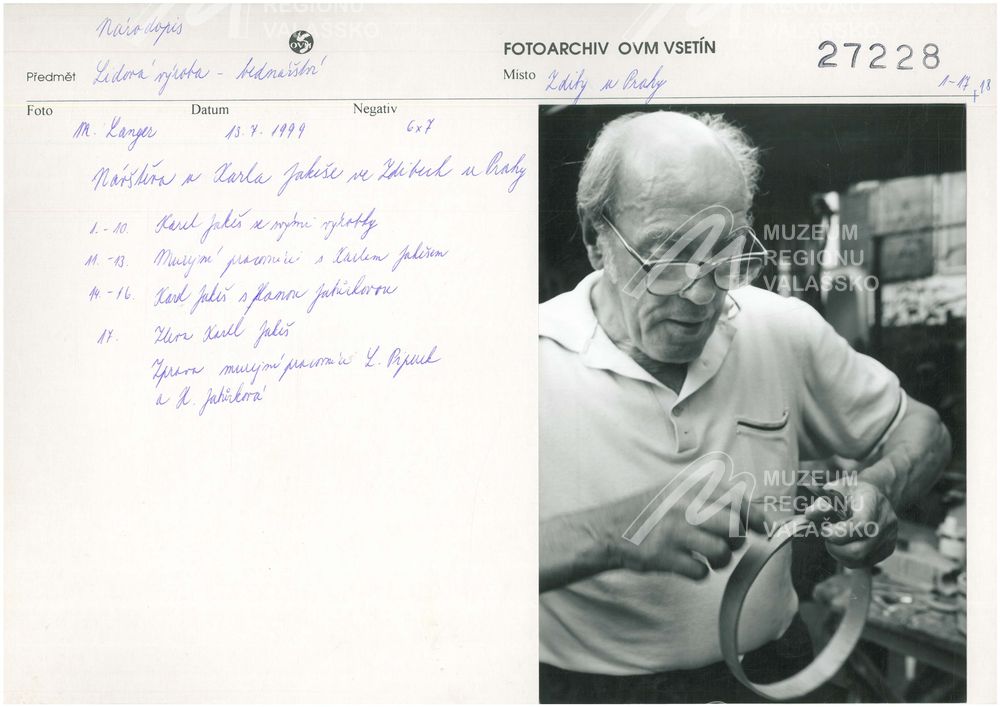 Národopis
OVM
FOTOARCHIV OVM VSETÍN
27228
Předmět Lidová výroba - bednářství
Místo Zdiby u Prahy
1-17 + 18
Foto Datum Negativ
M. Langer 13.7.1999 6x7
Návštěva u Karla Jakeše ve Zdibech u Prahy
1.-10. Karel Jakeš se svými výrobky
11.-13. Muzejní pracovníci s Karlem Jakešem
14.-16. Karel Jakeš s Hanou Jabůrkovou
17. Zleva Karel Jakeš
Zprava muzejní pracovníci L.
a H. Jabůrková
MUZEUM
REGIONU
VALAŠSKO
MUZEUM
REGIONU
VALAŠSKO
REGIONU
VALAŠSKO
REGIONU
VALAŠSKO